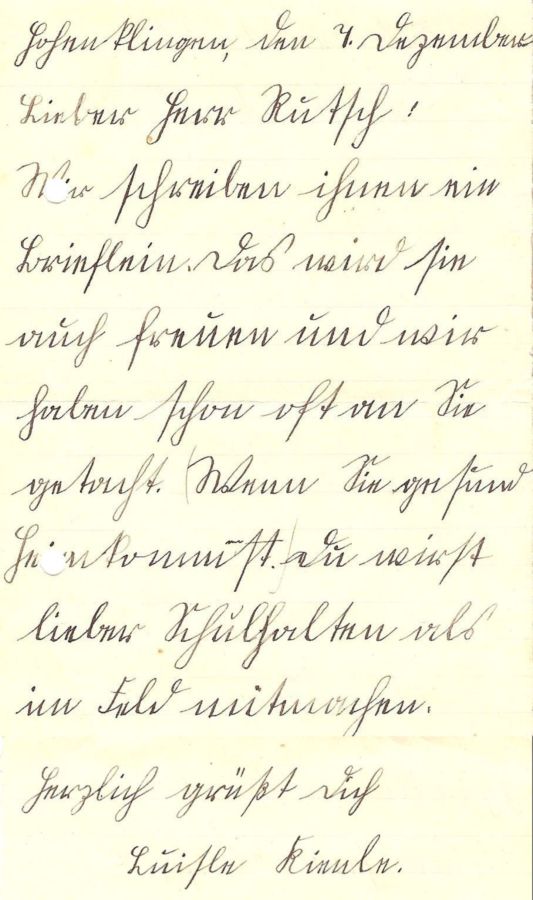 Hohenklingen, den 7. Dezember
Lieber Herr Rutsch!
Wir schreiben ihnen ein
Brieflein. Das wird sie
auch freuen und wir
haben schon oft an Sie
getacht. (Wenn Sie gesund
Heimkommst.) Du wirst
lieber Schulhalten als
im Feld mitmachen.
Herzlich grüßt Dich
Luisle Kienle.